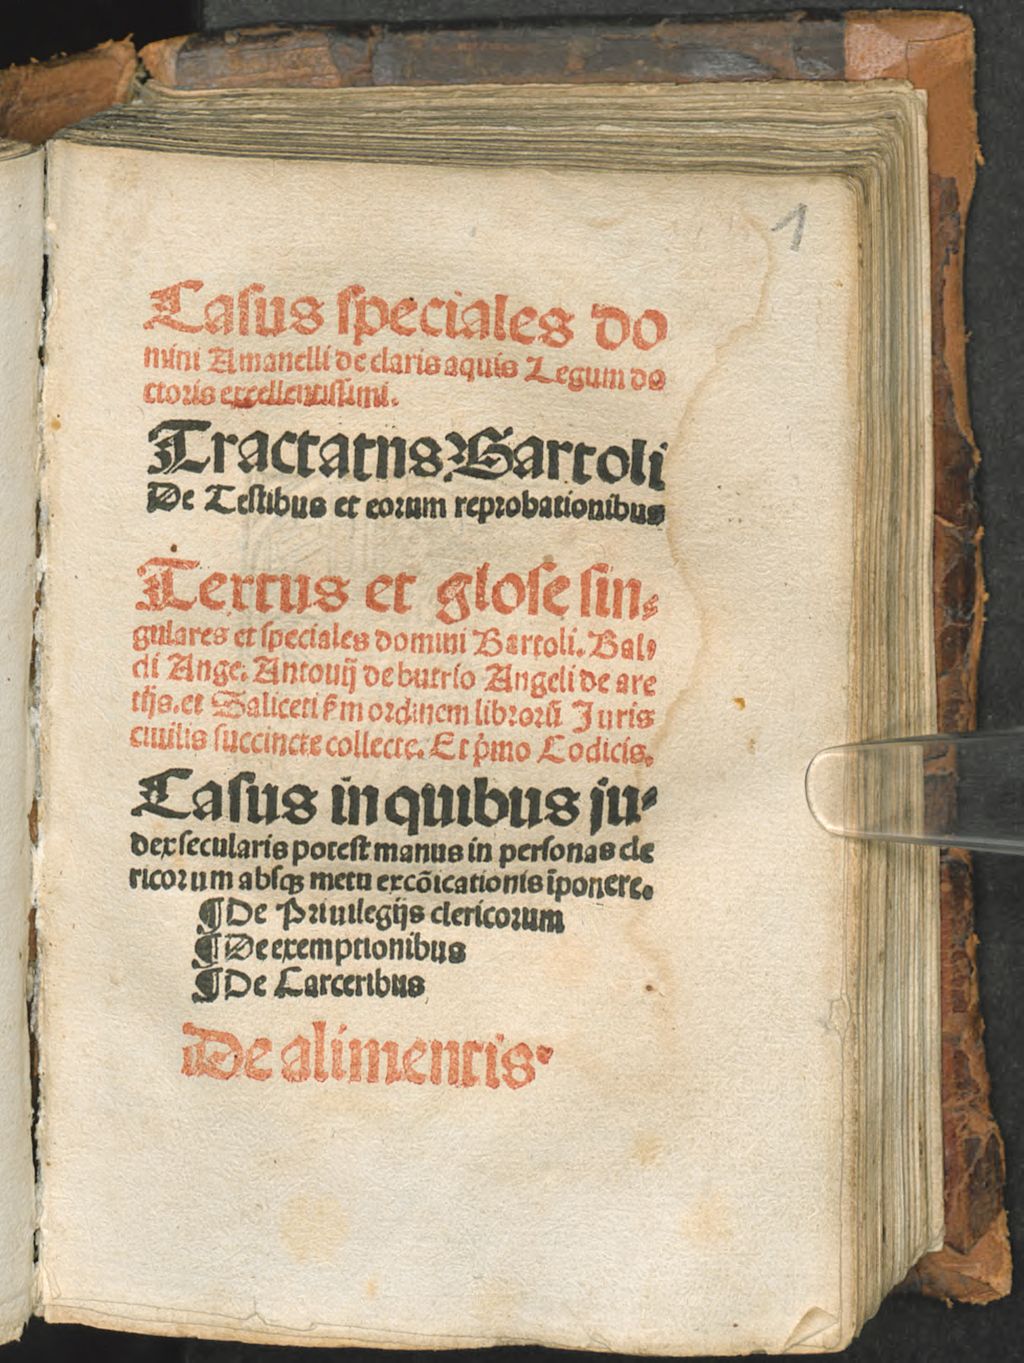 1
Casus speciales do
mini Amanelli de claris aquis Legum do
ctoris excellentissimi.
Tractatns Bartoli
De Testibus et eorum reprobationibus
Textus et glose sin⸗
gulares et speciales domini Bartoli. Bal⸗
di Ange. Antonij de butrio Angeli de are
tijs. et Saliceti ẜm ordinem librorū Iuris
ciuilis succincte collecte. Et p̄mo Codicis.
Casus in quibus iu⸗
dex secularis potest manus in personas cle
ricorum absqꝫ metu excōicationis īponere.
¶ De Priuilegijs clericorum
¶ De exemptionibus
¶ De Carceribus
De alimentis.